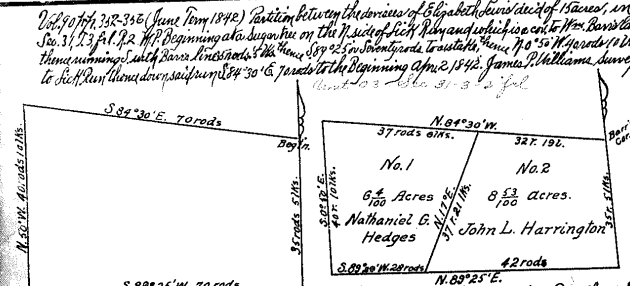 Vol. 90, pp. 352-356 (June Term 1842) Partition between the devisees of Elizabeth Lewis dec'd of 15 acres, in
Sec. 31, T.3 fr'l. R.2 W.P. Beginning at a Sugar tree on the N. side of Lick Run and which is a cor. to Wm. Barr's
thence running S. with Barr's line rods 5 lks. thence S 89° 25' W. Seventy rods to a stake, thence N. 0° 50' W. 40 rods 10 l
to Lick Run, thence down said run S 84° 30' E. 70 rods to the Beginning Apr. 2, 1842. James P. Williams Survey
Sec 31-3-2 frl
S 84° 30' E. 70 rods
Begin.
N. 50' W. 40 rods 10 lks.
35 rods 5 lks.
S 89° 25' W. 70 rods
N. 84° 30' W.
37 rods 6 lks.
32 r. 19 l.
Barr
Cor.
S. 0° 50' E.
40 r. 10 lks.
No. 1
6 4/100 Acres
Nathaniel G.
Hedges
N. 17° E.
37 r. 21 lks.
No. 2
8 53/100 acres.
John L. Harrington
35 r. 5 lks.
S. 89° W. 28 rods
42 rods
N. 89° 25' E.